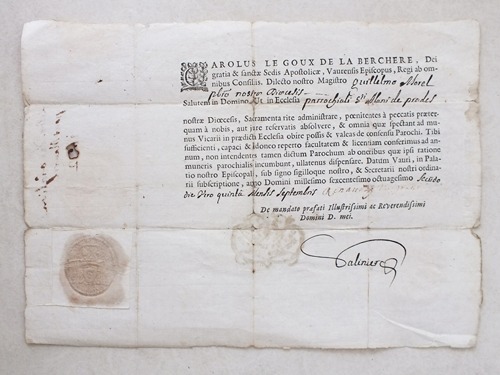 CAROLUS LE GOUX DE LA BERCHERE, Dei
gratia & sanctæ Sedis Apostolicæ, Vaurensis Episcopus, Regi ab om-
nibus Consiliis. Dilecto nostro Magistro Guillelmo Morel
pbro nostræ Diœcesis
Salutem in Domino. Ut in Ecclesia parrochiali Sti Alani de
nostræ Diœcesis, Sacramenta rite administrare, pœnitentes à peccatis præter-
quam à nobis, aut jure reservatis absolvere, & omnia quæ spectant ad mu-
nus Vicarii in prædictis Ecclesia obire possis & valeas de consensu Parochi. Tibi
sufficienti, capaci & idoneo repertò facultatem & licentiam conferimus ad an-
num, non intendentes tamen dictum Parochum ab oneribus quæ ipsi ratione
muneris parochialis incumbunt, ullatenus dispensare. Datum Vauri, in Pala-
tio nostro Episcopali, sub signo sigilloque nostro, & Secretarii nostri ordina-
rii subscriptione, anno Domini millesimo sexcentesimo octuagesimo
die Vero quinta Mensis Septembris
De mandato præfati Illustrissimi ac Reverendissimi
Domini D. mei.